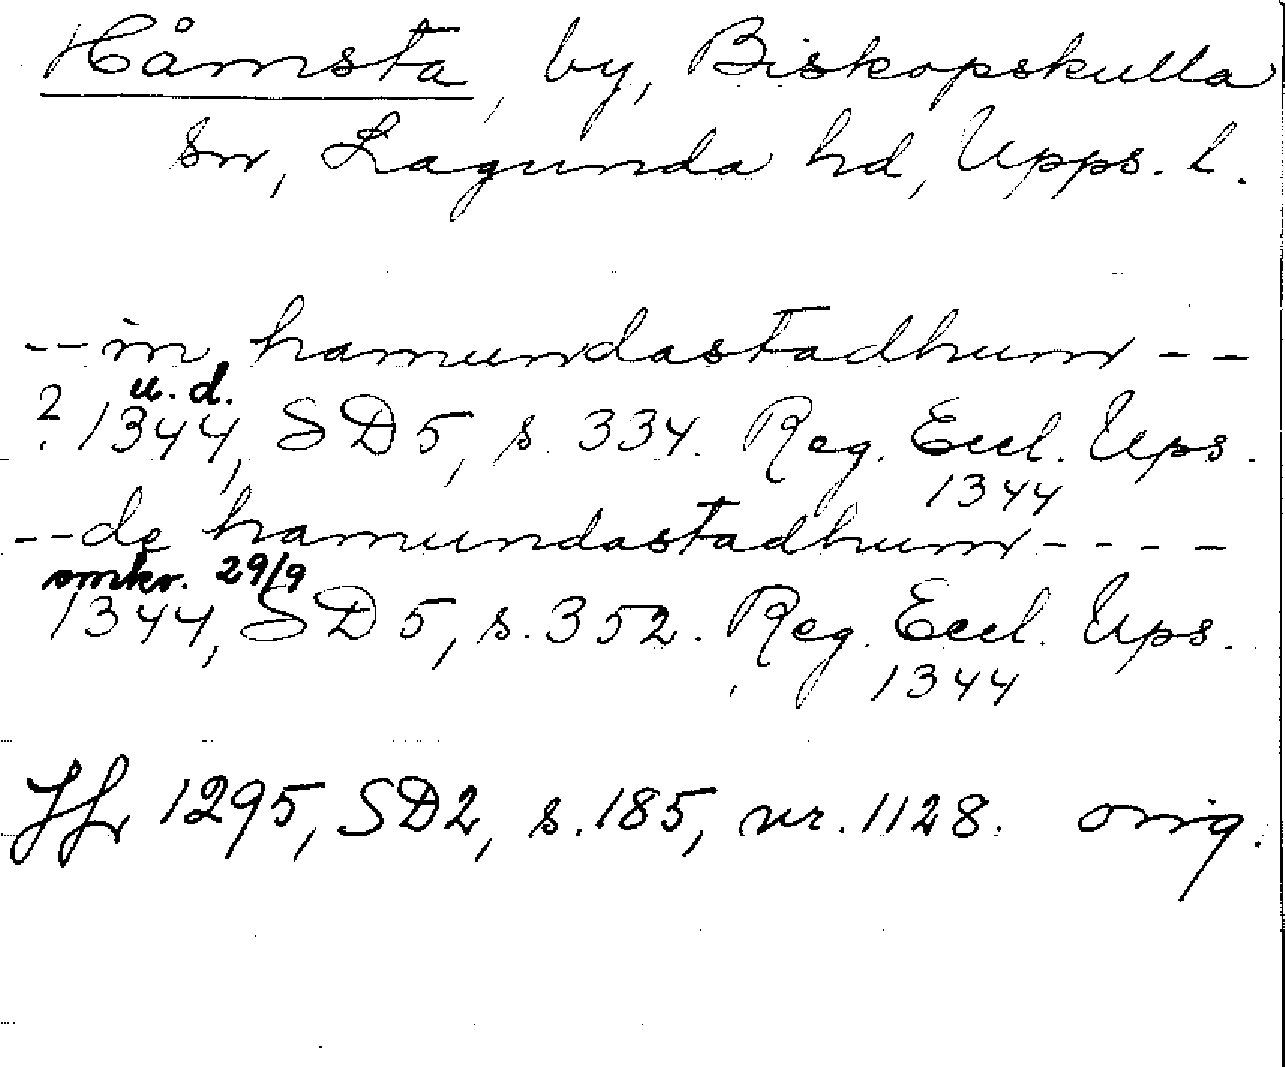 Håmsta, by, Biskopskulla
sn, Lagunda hd, Upps. l.
-- in hamundastadhum --
u. d.
? 1344, SD 5, s. 334. Reg. Eccl. Ups.
1344
-- de hamundastadhum ----
omkr. 29/9
1344, SD 5, s. 352. Reg. Eccl. Ups.
1344
Jfr 1295, SD2, s. 185, nr. 1128. orig.